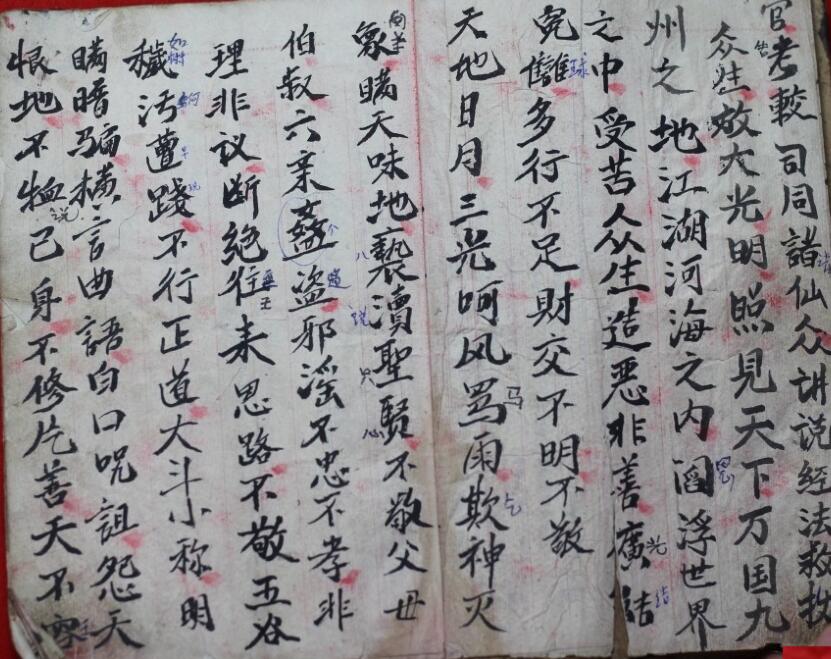 官考較司同諸仙众讲说经法救拔
众生放大光明照見天下万国九
州之地江湖河海之内阎浮世界
之中受苦众生造恶非善廣結
冤讎多行不足財交不明不敬
天地日月三光呵风骂雨欺神灭
象瞒天昧地褻瀆聖賢不敬父母
伯叔六亲盗邪滛不忠不孝非
理非议断絕往来思路不敬五谷
穢污遭踐不行正道大斗小称明
瞒暗骗橫言曲語白口呪詛怨天
恨地不恤己身不修片善天不容